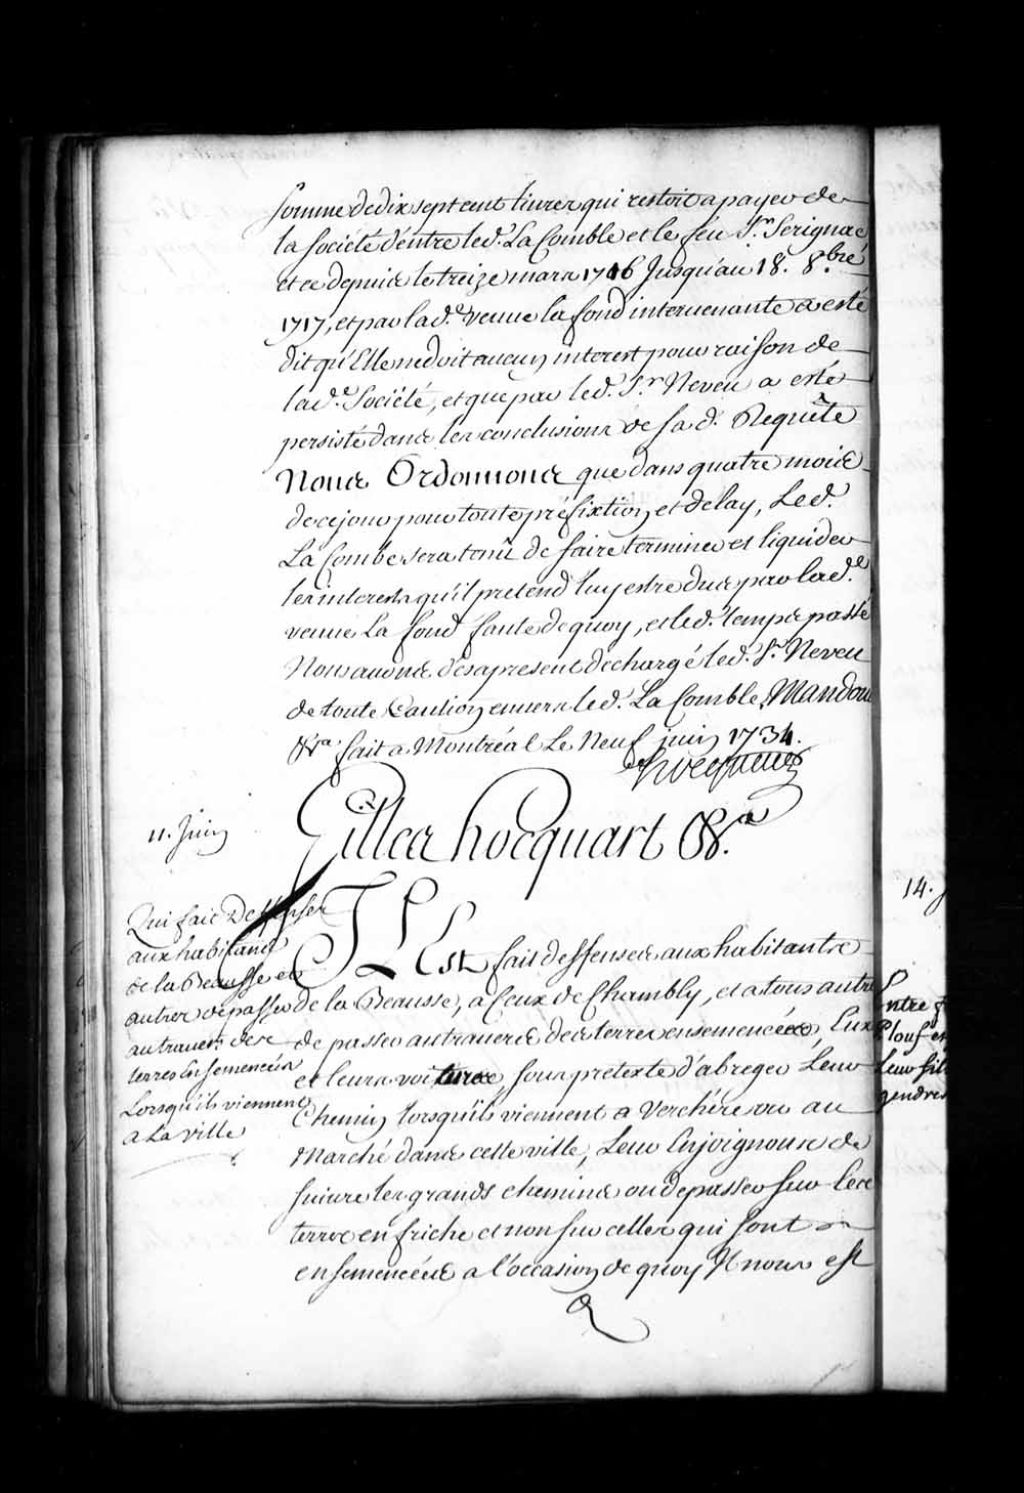 somme de dix sept cent livres qui restoit a payer de
la Société d'entre led. La Comble et le feu Sr. Serignac
et ce depuis le treize mars 1716 Jusqu'au 18. 8.bre
1717, et par lad.e veuve la fond intervenante a esté
dit qu'Elle ne doit aucun interest pour raison de
lad.e Société, et que par led. S.r Neveu a esté
persisté dans les conclusions de sa d. Requête
Nous Ordonnons que dans quatre mois
de ce jour pour toute préfixtion et delay, Led.
La Combe sera tenû de faire terminer et liquider
les interests qu'il pretend luy estre dus par lad.e
veuve La fond faute de quoy, et led. temps passé
Nous avons dès apresent dechargé led. S.r Neveu
de toute Caution envers led. La Comble, Mandons
&c.a fait a Montréal Le Neuf juin 1734.
Hocquart
11. Juin
Gilles hocquart &c.a
Qui fait Deffenses
aux habitans
de la Beausse et
autres de passer
au travers des
terres Ensemencées
Lorsqu'ils viennent
a La ville
IL Est fait deffenses aux habitants
de la Beausse, a Ceux de Chambly, et a tous autres
de passer au travers des terres ensemencées, Eux
et leurs voitures sous pretexte d'abreger Leur
Chemin lorsqu'ils viennent a Verchère ou au
Marché dans cette ville, Leur Enjoignons de
suivre les grands chemins ou de passer sur Les
terres en friche et non sur celles qui sont
ensemencées a l'occasion de quoy Il nous est
14. J
Entre
Plouf et
Leur fils
gendres